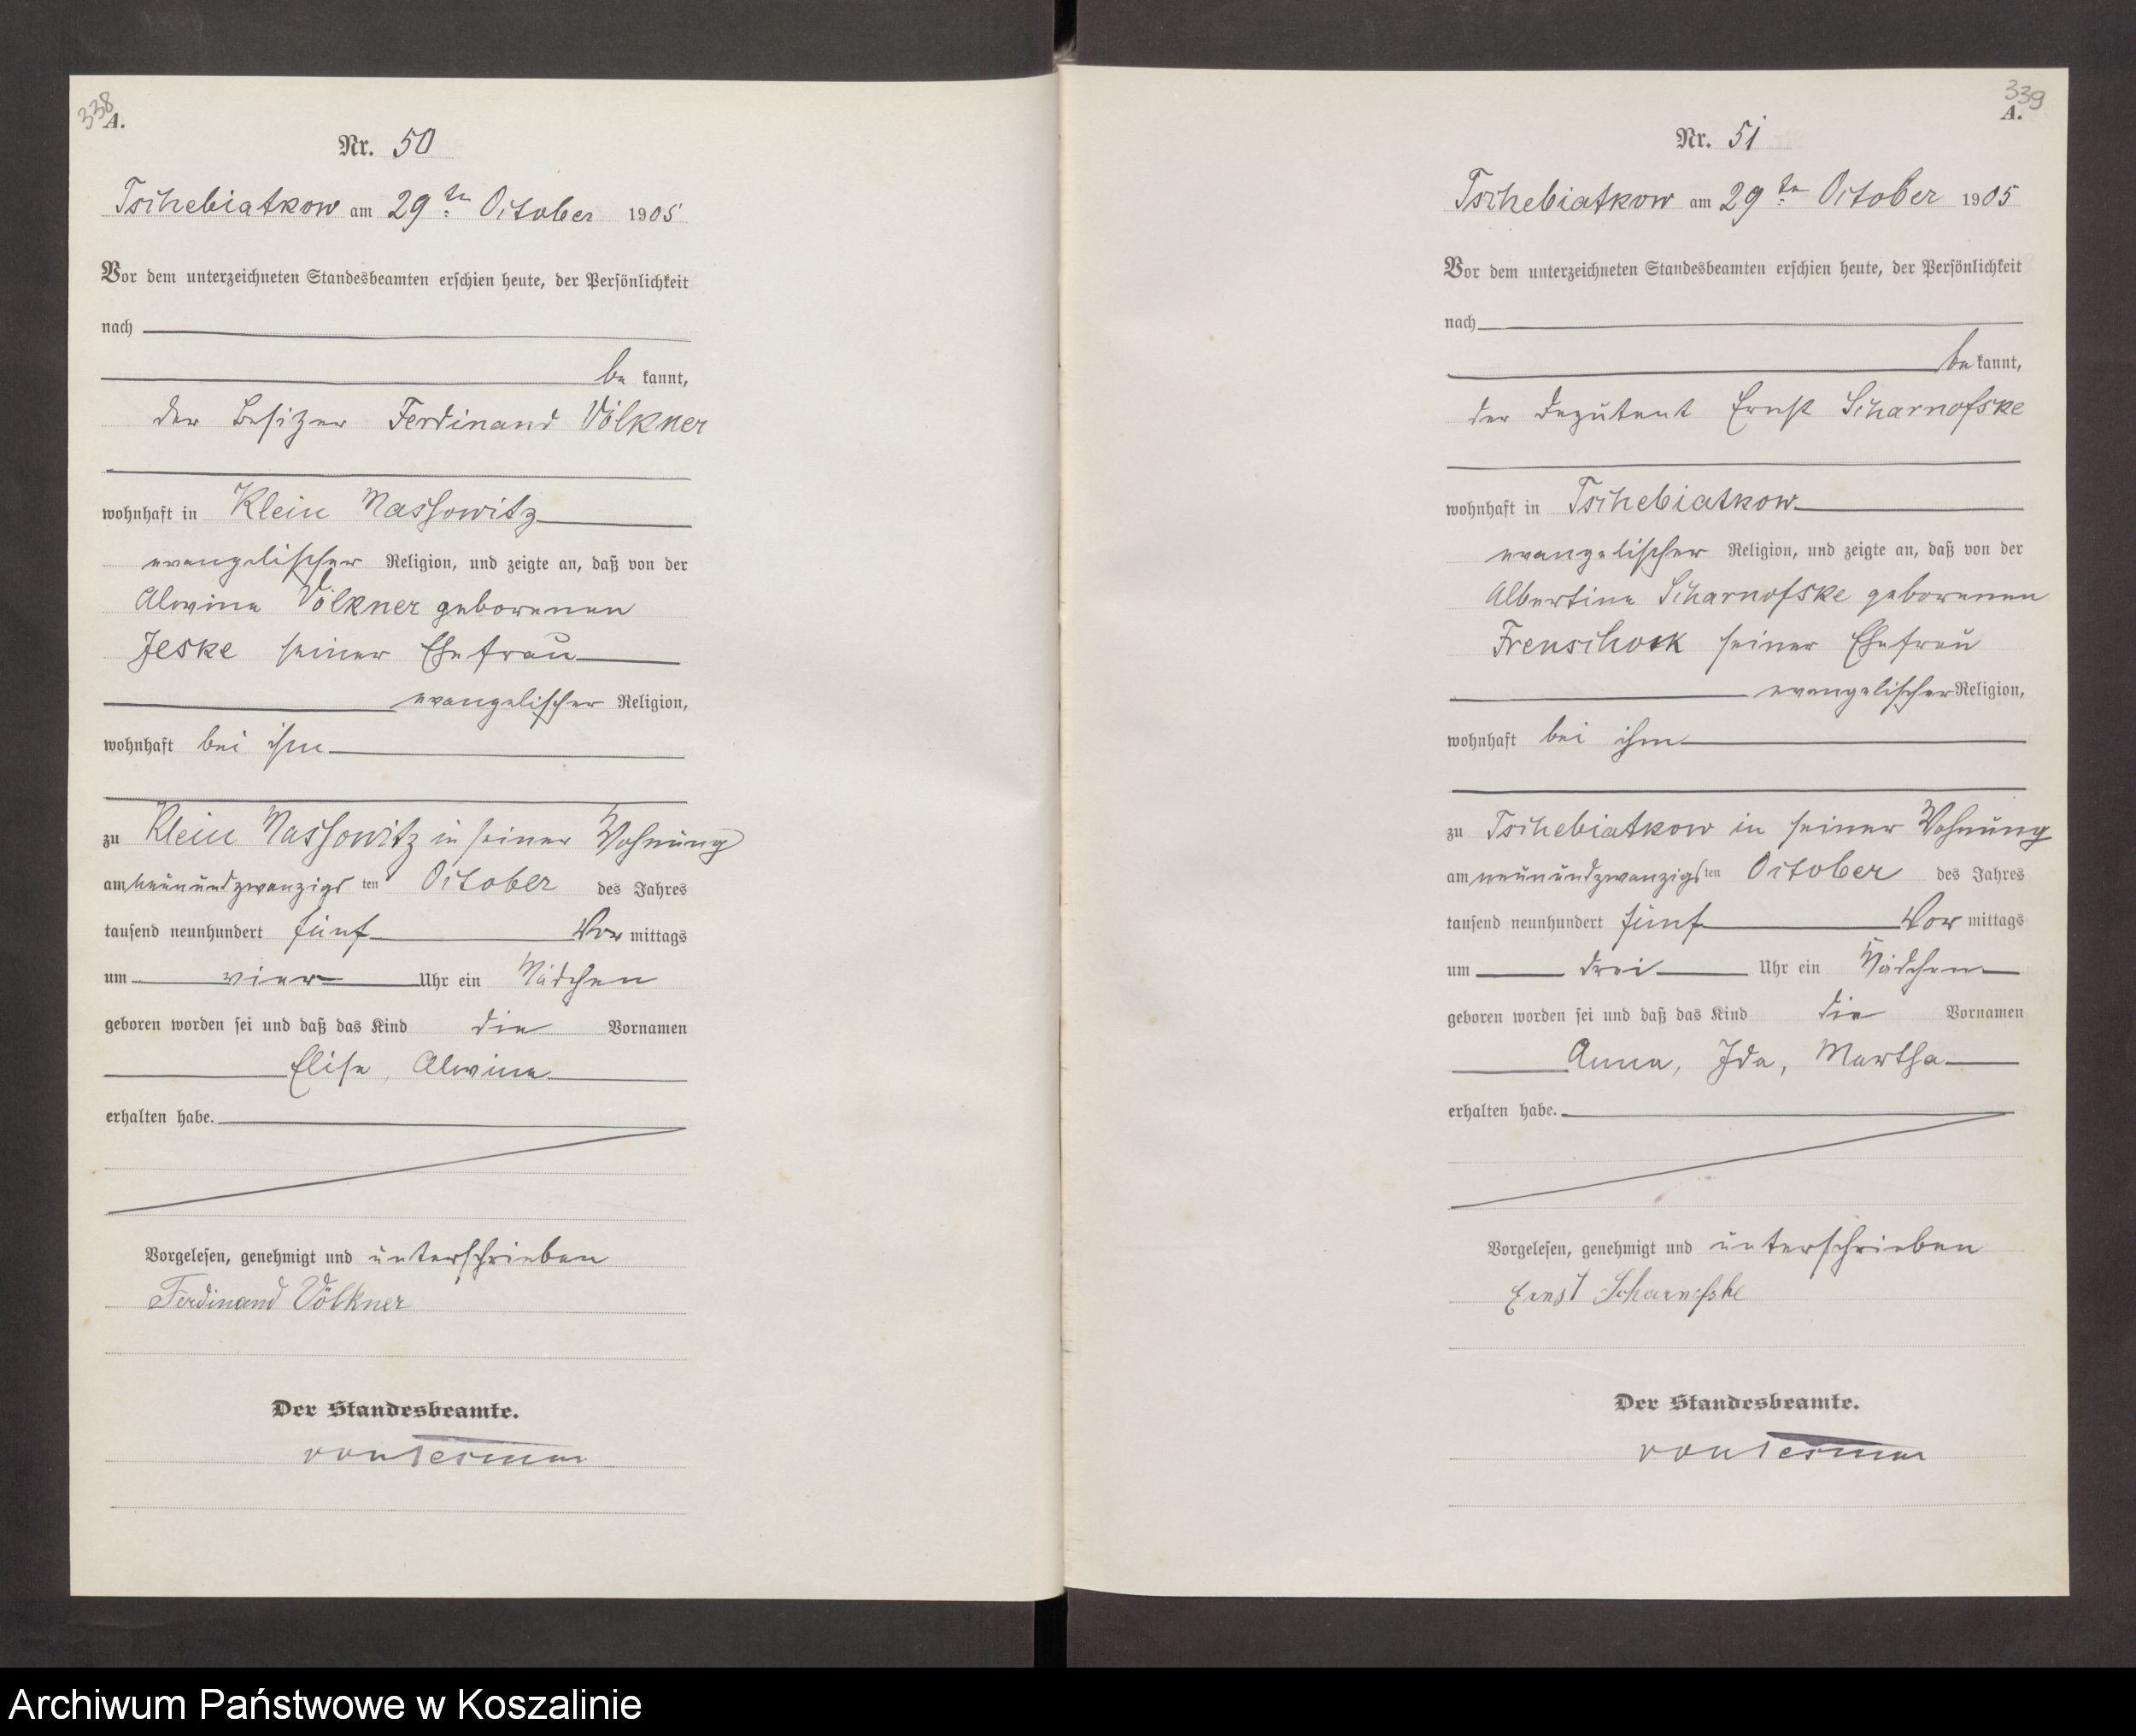 338
A.
Nr. 50
Tschebiatkow am 29ten October 1905
Vor dem unterzeichneten Standesbeamten erschien heute, der Persönlichkeit
nach
be kannt,
der Besitzer Ferdinand Völkner
wohnhaft in Klein Massowitz
evangelischer Religion, und zeigte an, daß von der
Alwine Völkner geborenen
Jeske seiner Ehefrau
evangelischer Religion,
wohnhaft bei ihm
zu Klein Massowitz in seiner Wohnung
am neunundzwanzigsten October des Jahres
tausend neunhundert fünf Vor mittags
um vier Uhr ein Mädchen
geboren worden sei und daß das Kind die Vornamen
Elise, Alwine
erhalten habe.
Vorgelesen, genehmigt und unterschrieben
Ferdinand Völkner
Der Standesbeamte.
von Tesmar
339
A.
Nr. 51
Tschebiatkow am 29ten October 1905
Vor dem unterzeichneten Standesbeamten erschien heute, der Persönlichkeit
nach
be kannt,
der Deputant Ernst Scharnofske
wohnhaft in Tschebiatkow
evangelischer Religion, und zeigte an, daß von der
Albertine Scharnofske geborenen
Frenschock seiner Ehefrau
evangelischer Religion,
wohnhaft bei ihm
zu Tschebiatkow in seiner Wohnung
am neunundzwanzigsten October des Jahres
tausend neunhundert fünf Vor mittags
um drei Uhr ein Mädchen
geboren worden sei und daß das Kind die Vornamen
Anna, Ida, Martha
erhalten habe.
Vorgelesen, genehmigt und unterschrieben
Ernst Scharnofske
Der Standesbeamte.
von Tesmar
Archiwum Państwowe w Koszalinie